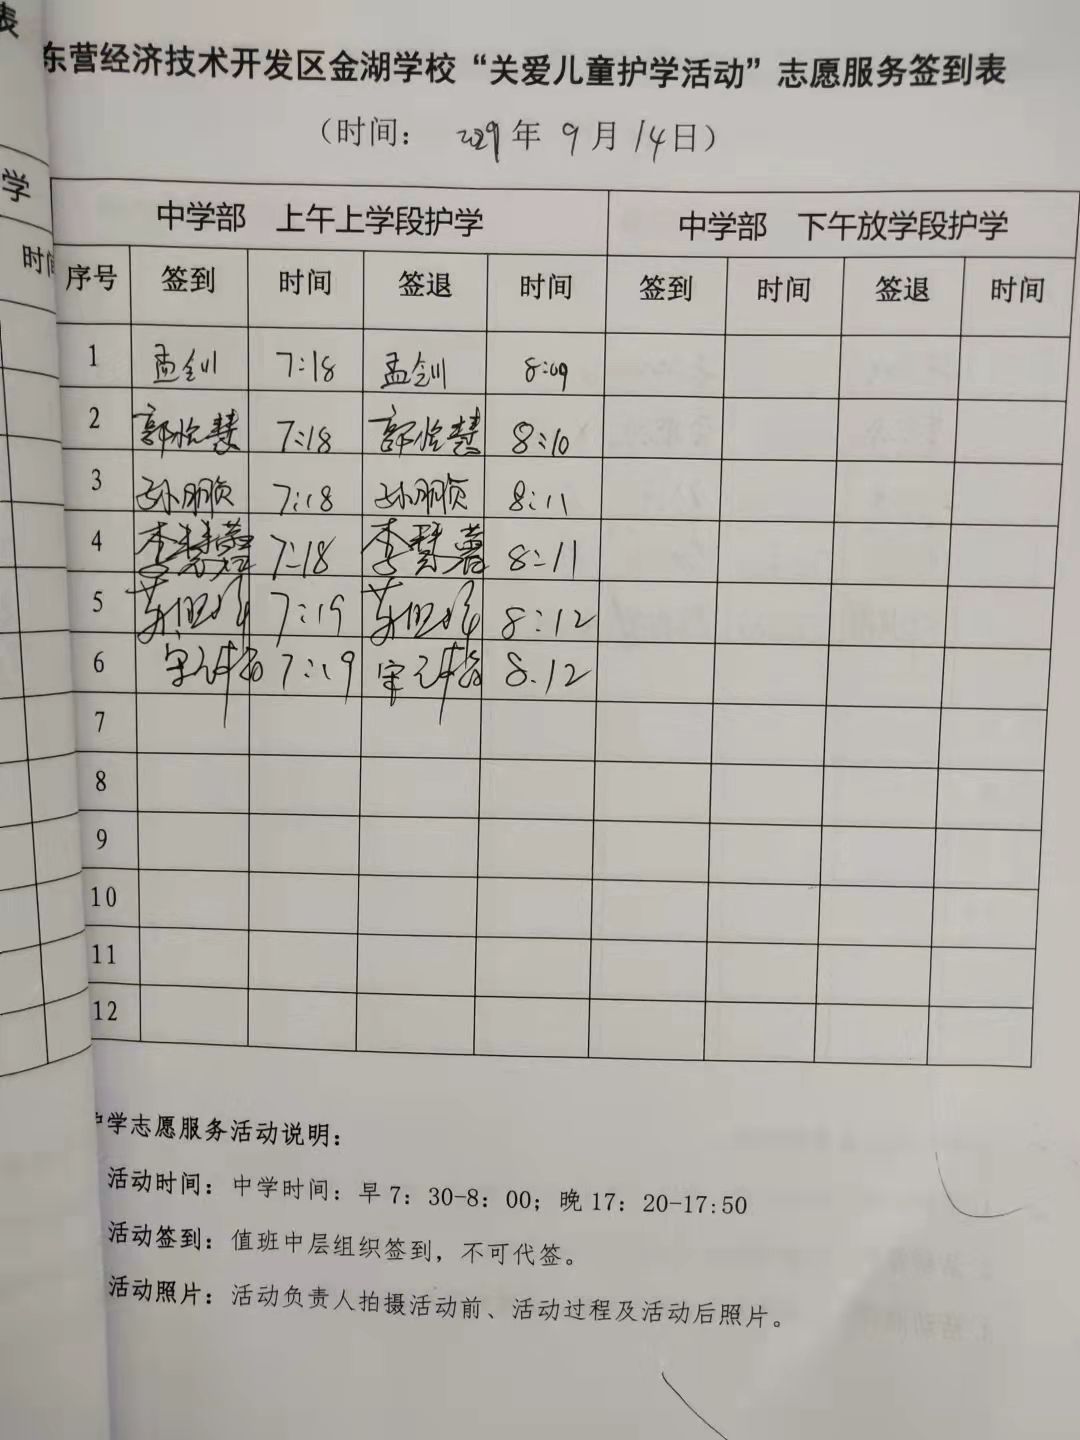 表
东营经济技术开发区金湖学校“关爱儿童护学活动”志愿服务签到表
（时间： 年 9 月 14 日）
学
时间
中学部 上午上学段护学 中学部 下午放学段护学
序号 签到 时间 签退 时间 签到 时间 签退 时间
1 孟钊 7:18 孟钊 8:09
2 郭 慧 7:18 郭 慧 8:10
3 孙朋 7:18 孙朋 8:11
4 李慧蓉 7:18 李慧蓉 8:11
5 7:19 8:12
6 宋元梅 7:19 宋元梅 8.12
7
8
9
10
11
12
护学志愿服务活动说明：
活动时间：中学时间：早 7：30-8：00；晚 17：20-17:50
活动签到：值班中层组织签到，不可代签。
活动照片：活动负责人拍摄活动前、活动过程及活动后照片。